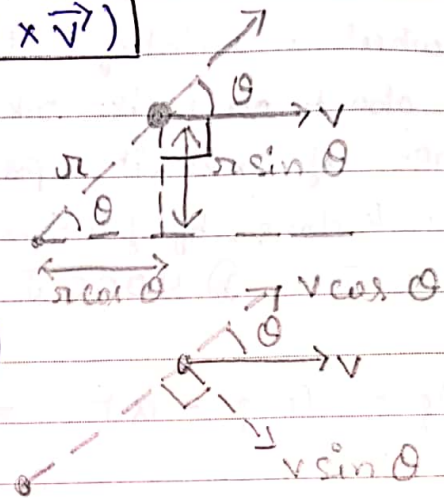 × v⃗ )
θ
v
r
r sin θ
θ
r cos θ
v cos θ
θ
v
v sin θ